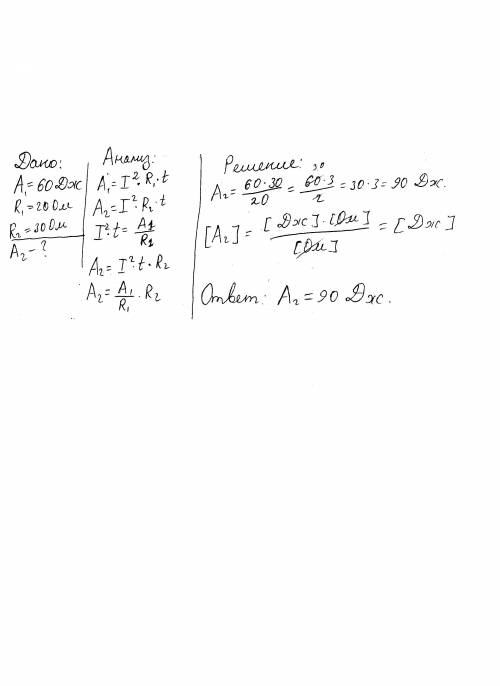 Дано:
A₁=60Дж
R₁=20Ом
R₂=30Ом
A₂-?
Анализ:
A₁=I²·R₁·t
A₂=I²·R₂·t
I²·t=A₁/R₁
A₂=I²·t·R₂
A₂=A₁/R₁·R₂
Решение:
A₂=60·30/20=60·3/2=30·3=90 Дж.
[A₂]=[Дж]·[Ом]/[Ом]=[Дж]
Ответ: A₂=90 Дж.